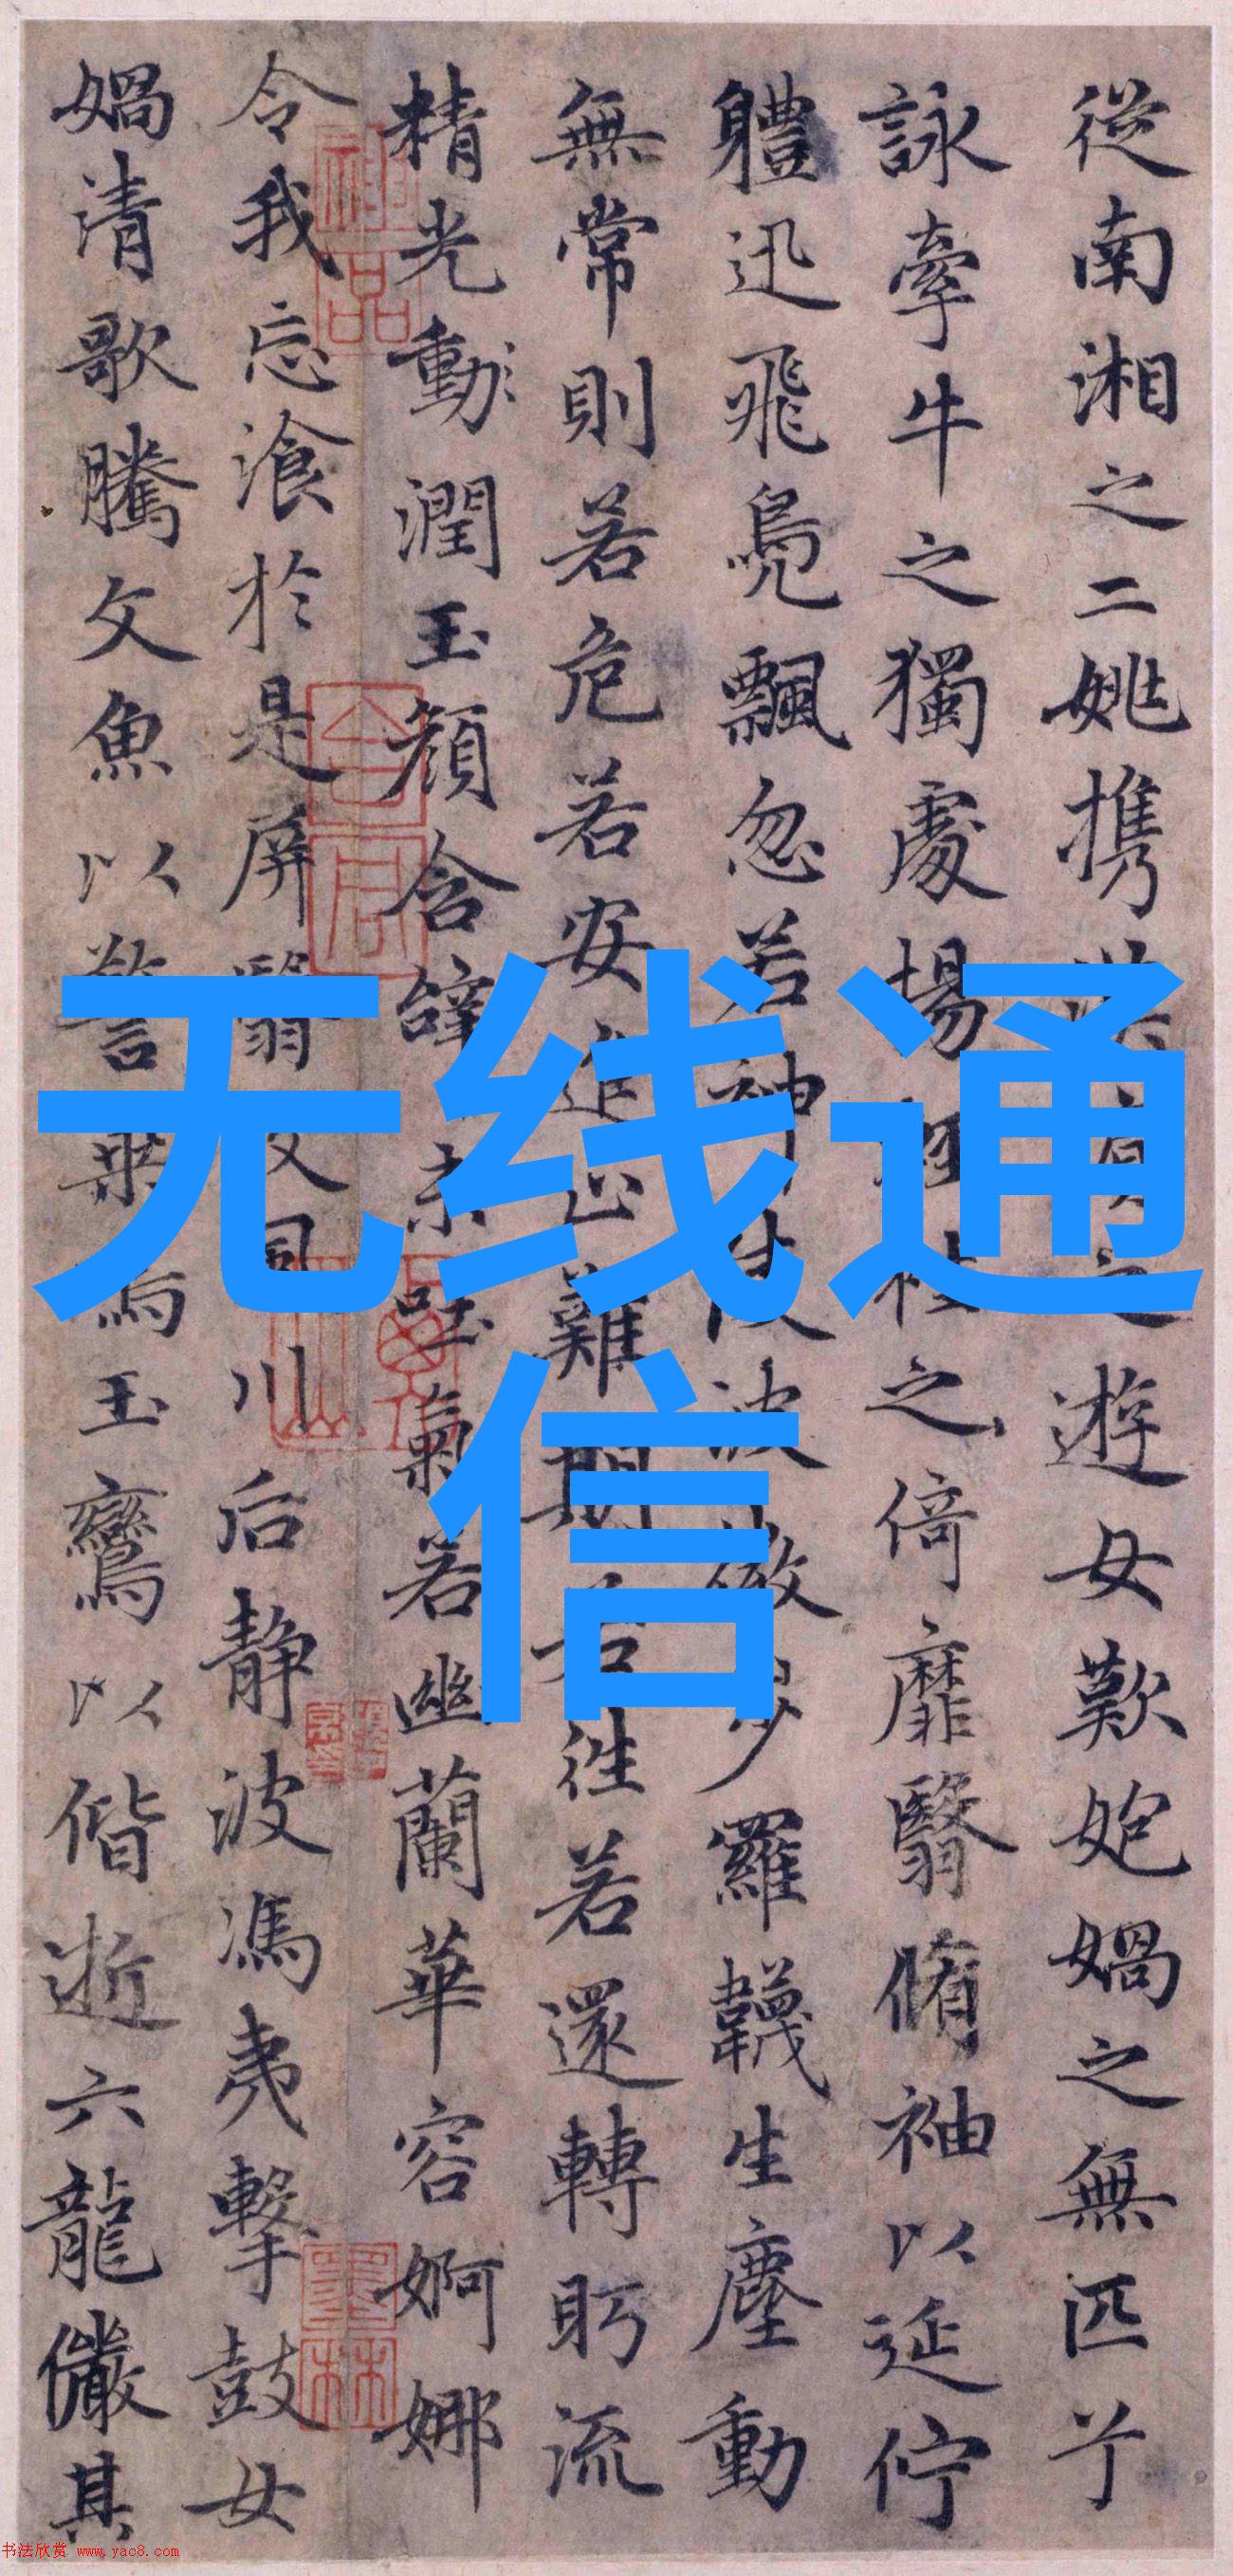 從南湘之二姚携之遊女歎媧之無匹兮
詠牽牛之獨處揚輕袿之倚靡翳脩袖以延佇
軆迅飛鳧飄忽若神陵波微步羅韈生塵動
無常則若危若安進止難期若往若還轉眄流
精光動潤玉顏含辭未吐氣若幽蘭華容婀娜
令我忘湌於是屏翳收風川后靜波馮夷擊鼓女
媧清歌騰文魚以警乘鳴玉鸞以偕逝六龍儼其
神品
墨林
无线通
信
书法欣赏 www.yac8.com